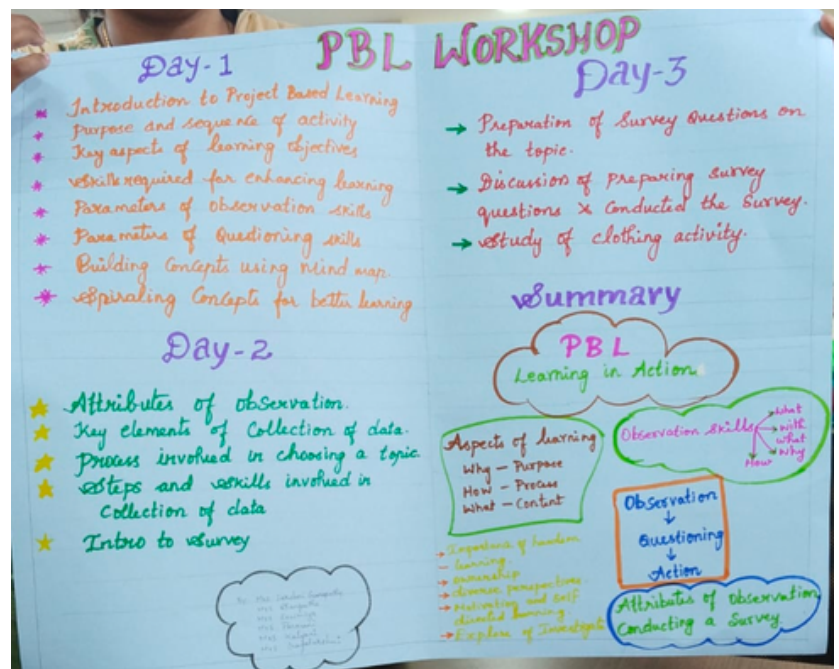 PBL WORKSHOP
Day-1
Introduction to Project Based Learning
Purpose and sequence of activity
Key aspects of learning objectives
Skills required for enhancing learning
Parameters of observation skills
Parameters of Questioning skills
Building Concepts using mind map.
Spiraling Concepts for better learning
Day-2
Attributes of observation.
Key elements of Collection of data.
Process involved in choosing a topic.
Steps and skills involved in
Collection of data
Intro to Survey
By Mrs
Mrs
Mrs
Mrs
Mrs Kalpana
Mrs
Day-3
→ Preparation of Survey Questions on
the topic.
→ Discussion of preparing survey
questions & Conducted the Survey.
→ Study of clothing activity.
Summary
PBL
Learning in Action
Aspects of learning
Why – Purpose
How – Process
What – Content
Observation skills
What
with
what
Why
How
Observation
↓
Questioning
↓
Action
→ Importance of
– learning.
→ ownership
→ diverse perspectives.
→ Motivating and Self
directed learning.
→ Explore of
Attributes of Observation
Conducting a Survey.